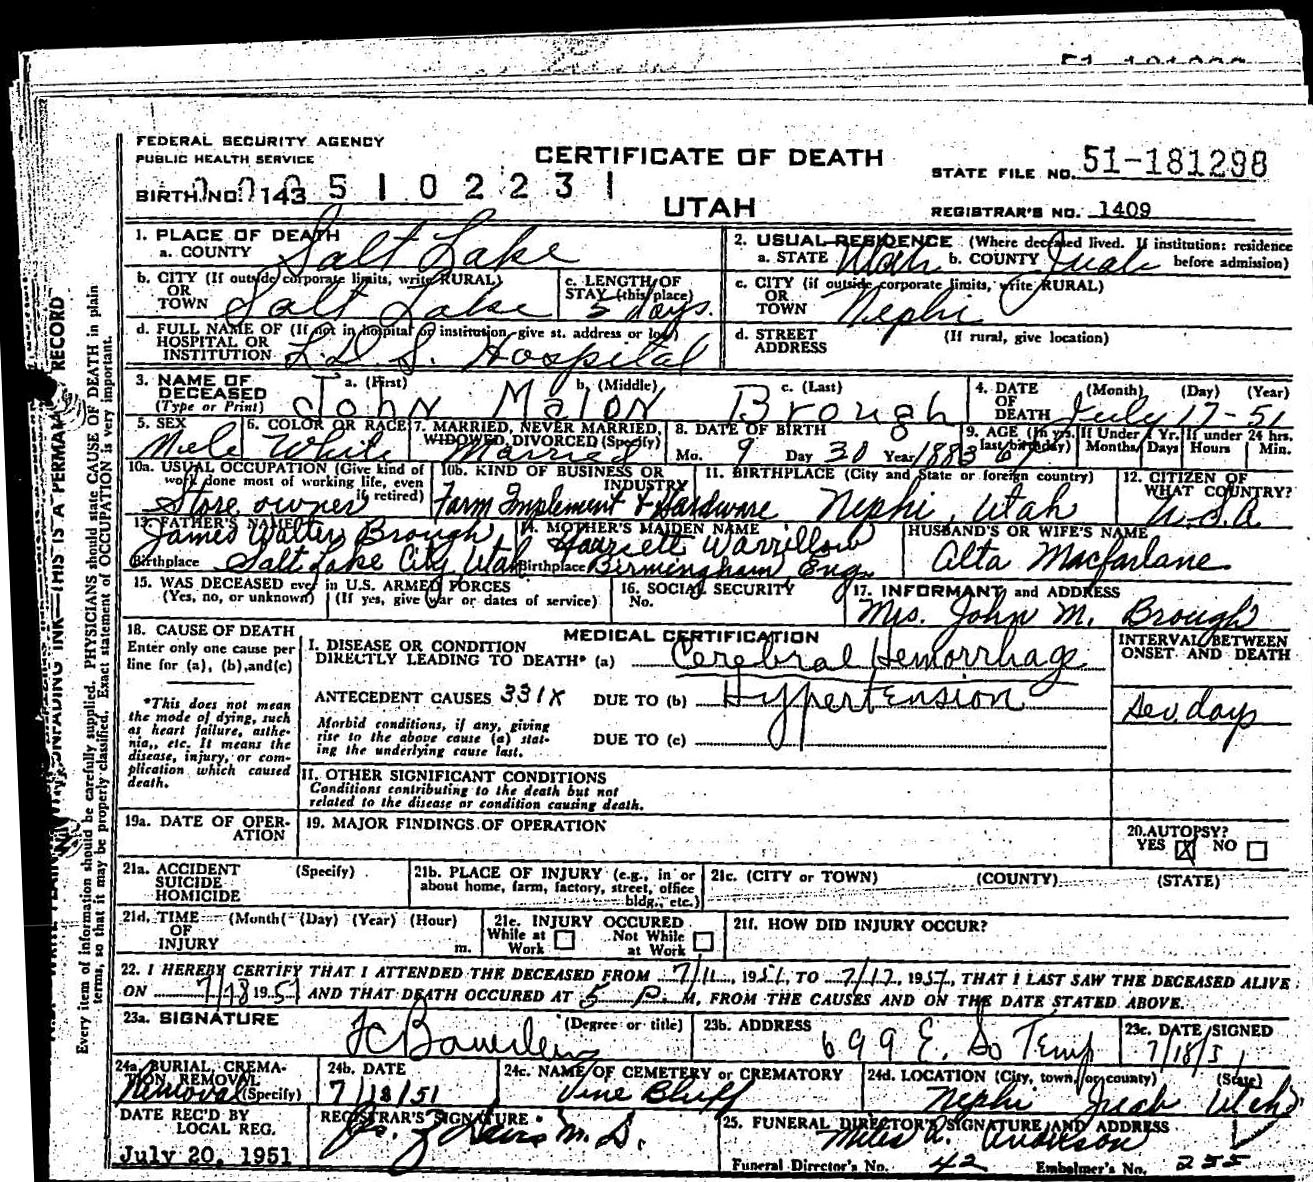 FEDERAL SECURITY AGENCY
PUBLIC HEALTH SERVICE
CERTIFICATE OF DEATH
STATE FILE NO. 51-181298
BIRTH NO. 143 5 1 0 2 2 3 1
UTAH
REGISTRAR'S NO. 1409
1. PLACE OF DEATH
a. COUNTY Salt Lake
2. USUAL RESIDENCE (Where deceased lived. If institution: residence
a. STATE Utah b. COUNTY Juab before admission)
b. CITY (If outside corporate limits, write RURAL)
OR
TOWN Salt Lake
c. LENGTH OF
STAY (this place)
5 days.
c. CITY (if outside corporate limits, write RURAL)
OR
TOWN Nephi
d. FULL NAME OF (If not in hospital or institution, give st. address or loc)
HOSPITAL OR
INSTITUTION L.D.S. Hospital
d. STREET (If rural, give location)
ADDRESS
3. NAME OF
DECEASED
(Type or Print)
a. (First) b. (Middle) c. (Last)
John Malon Brough
4. DATE (Month) (Day) (Year)
OF
DEATH July 17-51
5. SEX
Male
6. COLOR OR RACE
White
7. MARRIED, NEVER MARRIED,
WIDOWED, DIVORCED (Specify)
Married
8. DATE OF BIRTH
Mo. 9 Day 30 Year 1883
9. AGE (In yrs. last birthday) 67
If Under 1 Yr. Months Days
If under 24 hrs. Hours Min.
10a. USUAL OCCUPATION (Give kind of
work done most of working life, even
if retired)
Store owner
10b. KIND OF BUSINESS OR
INDUSTRY
Farm Implement & Hardware
11. BIRTHPLACE (City and State or foreign country)
Nephi, Utah
12. CITIZEN OF
WHAT COUNTRY?
U.S.A
13. FATHER'S NAME
James Walter Brough
Birthplace Salt Lake City, Utah
14. MOTHER'S MAIDEN NAME
Harriett Warrillow
Birthplace Birmingham Eng.
HUSBAND'S OR WIFE'S NAME
Alta Macfarlane
15. WAS DECEASED ever in U.S. ARMED FORCES
(Yes, no, or unknown) (If yes, give war or dates of service)
16. SOCIAL SECURITY
No.
17. INFORMANT and ADDRESS
Mrs. John M. Brough
18. CAUSE OF DEATH
Enter only one cause per
line for (a), (b), and(c)
*This does not mean
the mode of dying, such
as heart failure, asthe-
nia,, etc. It means the
disease, injury, or com-
plication which caused
death.
MEDICAL CERTIFICATION
I. DISEASE OR CONDITION
DIRECTLY LEADING TO DEATH* (a) Cerebral Hemorrhage
ANTECEDENT CAUSES 331X DUE TO (b) Hypertension
Morbid conditions, if any, giving
rise to the above cause (a) stat-
ing the underlying cause last.
DUE TO (c)
INTERVAL BETWEEN
ONSET AND DEATH
Sev. days
II. OTHER SIGNIFICANT CONDITIONS
Conditions contributing to the death but not
related to the disease or condition causing death.
19a. DATE OF OPER-
ATION
19. MAJOR FINDINGS OF OPERATION
20. AUTOPSY?
YES X NO
21a. ACCIDENT (Specify)
SUICIDE
HOMICIDE
21b. PLACE OF INJURY (e.g., in or
about home, farm, factory, street, office
bldg., etc.)
21c. (CITY or TOWN) (COUNTY) (STATE)
21d. TIME (Month) (Day) (Year) (Hour)
OF
INJURY m.
21e. INJURY OCCURED
While at Work Not While at Work
21f. HOW DID INJURY OCCUR?
22. I HEREBY CERTIFY THAT I ATTENDED THE DECEASED FROM 7/11, 1951, TO 7/17, 1951, THAT I LAST SAW THE DECEASED ALIVE
ON 1951 AND THAT DEATH OCCURED AT 5 P. M, FROM THE CAUSES AND ON THE DATE STATED ABOVE.
23a. SIGNATURE (Degree or title)
23b. ADDRESS
699 E. So Temp
23c. DATE SIGNED
7/18/51
24a. BURIAL, CREMA-
TION, REMOVAL
(Specify)
Removal
24b. DATE
7/18/51
24c. NAME OF CEMETERY or CREMATORY
Vine Bluff
24d. LOCATION (City, town, or county) (State)
Nephi Juab Utah
DATE REC'D BY
LOCAL REG.
July 20, 1951
REGISTRAR'S SIGNATURE
M.D.
25. FUNERAL DIRECTOR'S SIGNATURE AND ADDRESS
Miles A. Anderson
Funeral Director's No. 42 Embalmer's No. 255
RECORD
THIS IS A PERMA
UNFADING INK
Every item of information should be carefully supplied. PHYSICIANS should state CAUSE OF DEATH in plain
terms, so that it may be properly classified. Exact statement of OCCUPATION is very important.